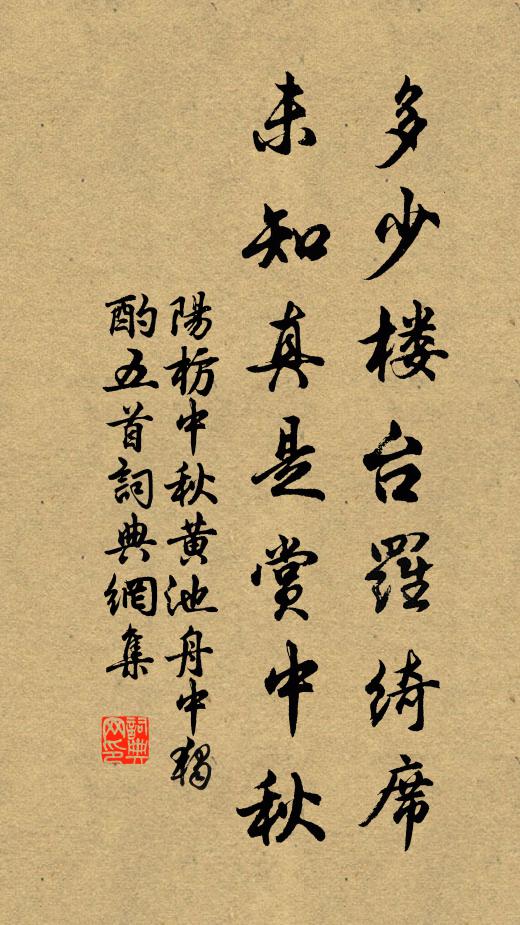 多少楼台羅綺席
未知真是賞中秋
陽枋中秋黄池舟中獨
酌五首詞典網集
詞典网印